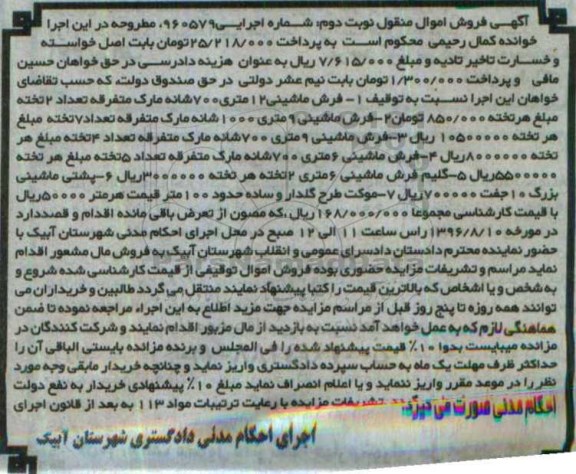 آگهی فروش اموال منقول نوبت دوم: شماره اجرایی ۹۶۰۵۷۹، مطروحه در این اجرا
خوانده کمال رحیمی محکوم است به پرداخت ۲۵/۲۱۸/۰۰۰ تومان بابت اصل خواسته
و خسارت تاخیر تادیه و مبلغ ۷/۶۱۵/۰۰۰ ریال به عنوان هزینه دادرسی در حق خواهان حسین
مافی و پرداخت ۱/۳۰۰/۰۰۰ تومان بابت نیم عشر دولتی در حق صندوق دولت، که حسب تقاضای
خواهان این اجرا نسبت به توقیف ۱- فرش ماشینی ۱۲ متری ۷۰۰ شانه مارک متفرقه تعداد ۲ تخته
مبلغ هر تخته ۸۵۰/۰۰۰ تومان ۲-فرش ماشینی ۹ متری ۱۰۰۰ شانه مارک متفرقه تعداد ۷ تخته مبلغ
هر تخته ۱۰۵۰۰۰۰۰ ریال ۳-فرش ماشینی ۹ متری ۷۰۰ شانه مارک متفرقه تعداد ۴ تخته مبلغ هر
تخته ۸۰۰۰۰۰۰ ریال ۴-فرش ماشینی ۶ متری ۷۰۰ شانه مارک متفرقه تعداد ۵ تخته مبلغ هر تخته
۵۵۰۰۰۰۰ ریال ۵-گلیم فرش ماشینی ۶ متری ۲ تخته هر تخته ۳۰۰۰۰۰۰ ریال ۶-پشتی ماشینی
بزرگ ۱۰ جفت ۷۰۰۰۰۰ ریال ۷-موکت طرح گلدار و ساده حدود ۱۰۰ متر قیمت هر متر ۵۰۰۰۰ ریال
با قیمت کارشناسی مجموعا ۱۶۸/۰۰۰/۰۰۰ ریال ،که مصون از تعرض باقی مانده اقدام و قصد دارد
در مورخه ۱۳۹۶/۸/۱۰ راس ساعت ۱۱ الی ۱۲ صبح در محل اجرای احکام مدنی شهرستان آبیک با
حضور نماینده محترم دادستان دادسرای عمومی و انقلاب شهرستان آبیک به فروش مال مشعور اقدام
نماید مراسم و تشریفات مزایده حضوری بوده فروش اموال توقیفی از قیمت کارشناسی شده شروع و
به شخص و یا اشخاص که بالاترین قیمت را کتبا پیشنهاد نمایند منتقل می گردد طالبین و خریداران می
توانند همه روزه تا پنج روز قبل از مراسم مزایده جهت مزید اطلاع به این اجراء مراجعه نموده تا ضمن
هماهنگی لازم که به عمل خواهد آمد نسبت به بازدید از مال مزبور اقدام نمایند و شرکت کنندگان در
مزایده میبایست بدوا ۱۰٪ قیمت پیشنهاد شده را فی المجلس و برنده مزایده بایستی الباقی آن را
حداکثر ظرف مهلت یک ماه به حساب سپرده دادگستری واریز نماید و چنانچه خریدار مابقی وجه مورد
نظر را در موعد مقرر واریز ننماید و یا اعلام انصراف نماید مبلغ ۱۰٪ پیشنهادی خریدار به نفع دولت
تشریفات مزایده با رعایت ترتیبات مواد ۱۱۳ به بعد از قانون اجرای
احکام مدنی صورت می گیرد.
اجرای احکام مدنی دادگستری شهرستان آبیک